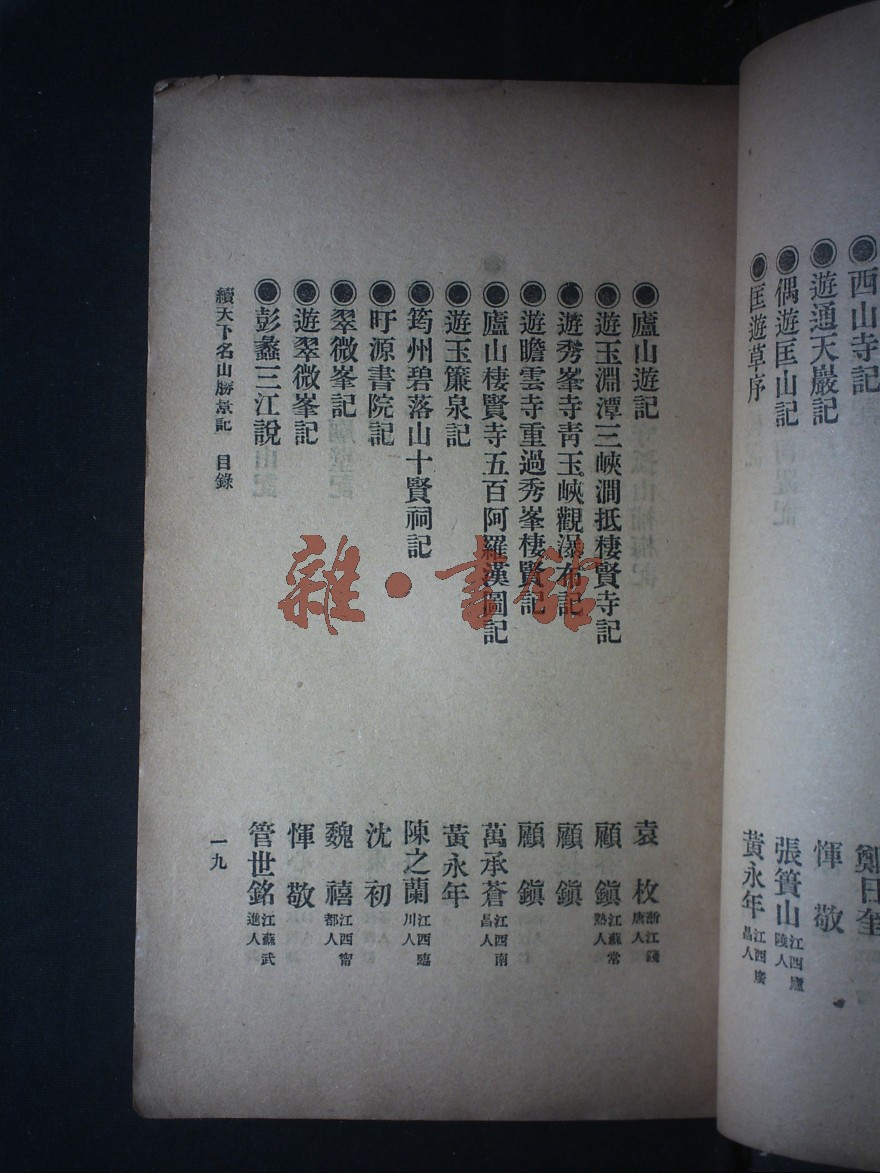 西山寺記 鄭日奎
遊通天巖記 惲敬
偶遊匡山記 張簣山 江西廬陵人
匡遊草序 黃永年 江西廣昌人
廬山遊記 袁枚 浙江錢唐人
遊玉淵潭三峽澗抵棲賢寺記 顧鎮 江蘇常熟人
遊秀峯寺靑玉峽觀瀑布記 顧鎮
遊瞻雲寺重過秀峯棲賢記 顧鎮
廬山棲賢寺五百阿羅漢圖記 萬承蒼 江西南昌人
遊玉簾泉記 黃永年
筠州碧落山十賢祠記 陳之蘭 江西臨川人
盱源書院記 沈初
翠微峯記 魏禧 江西甯都人
遊翠微峯記 惲敬
彭蠡三江說 管世銘 江蘇武進人
續天下名山勝景記 目錄 一九
雜·書館